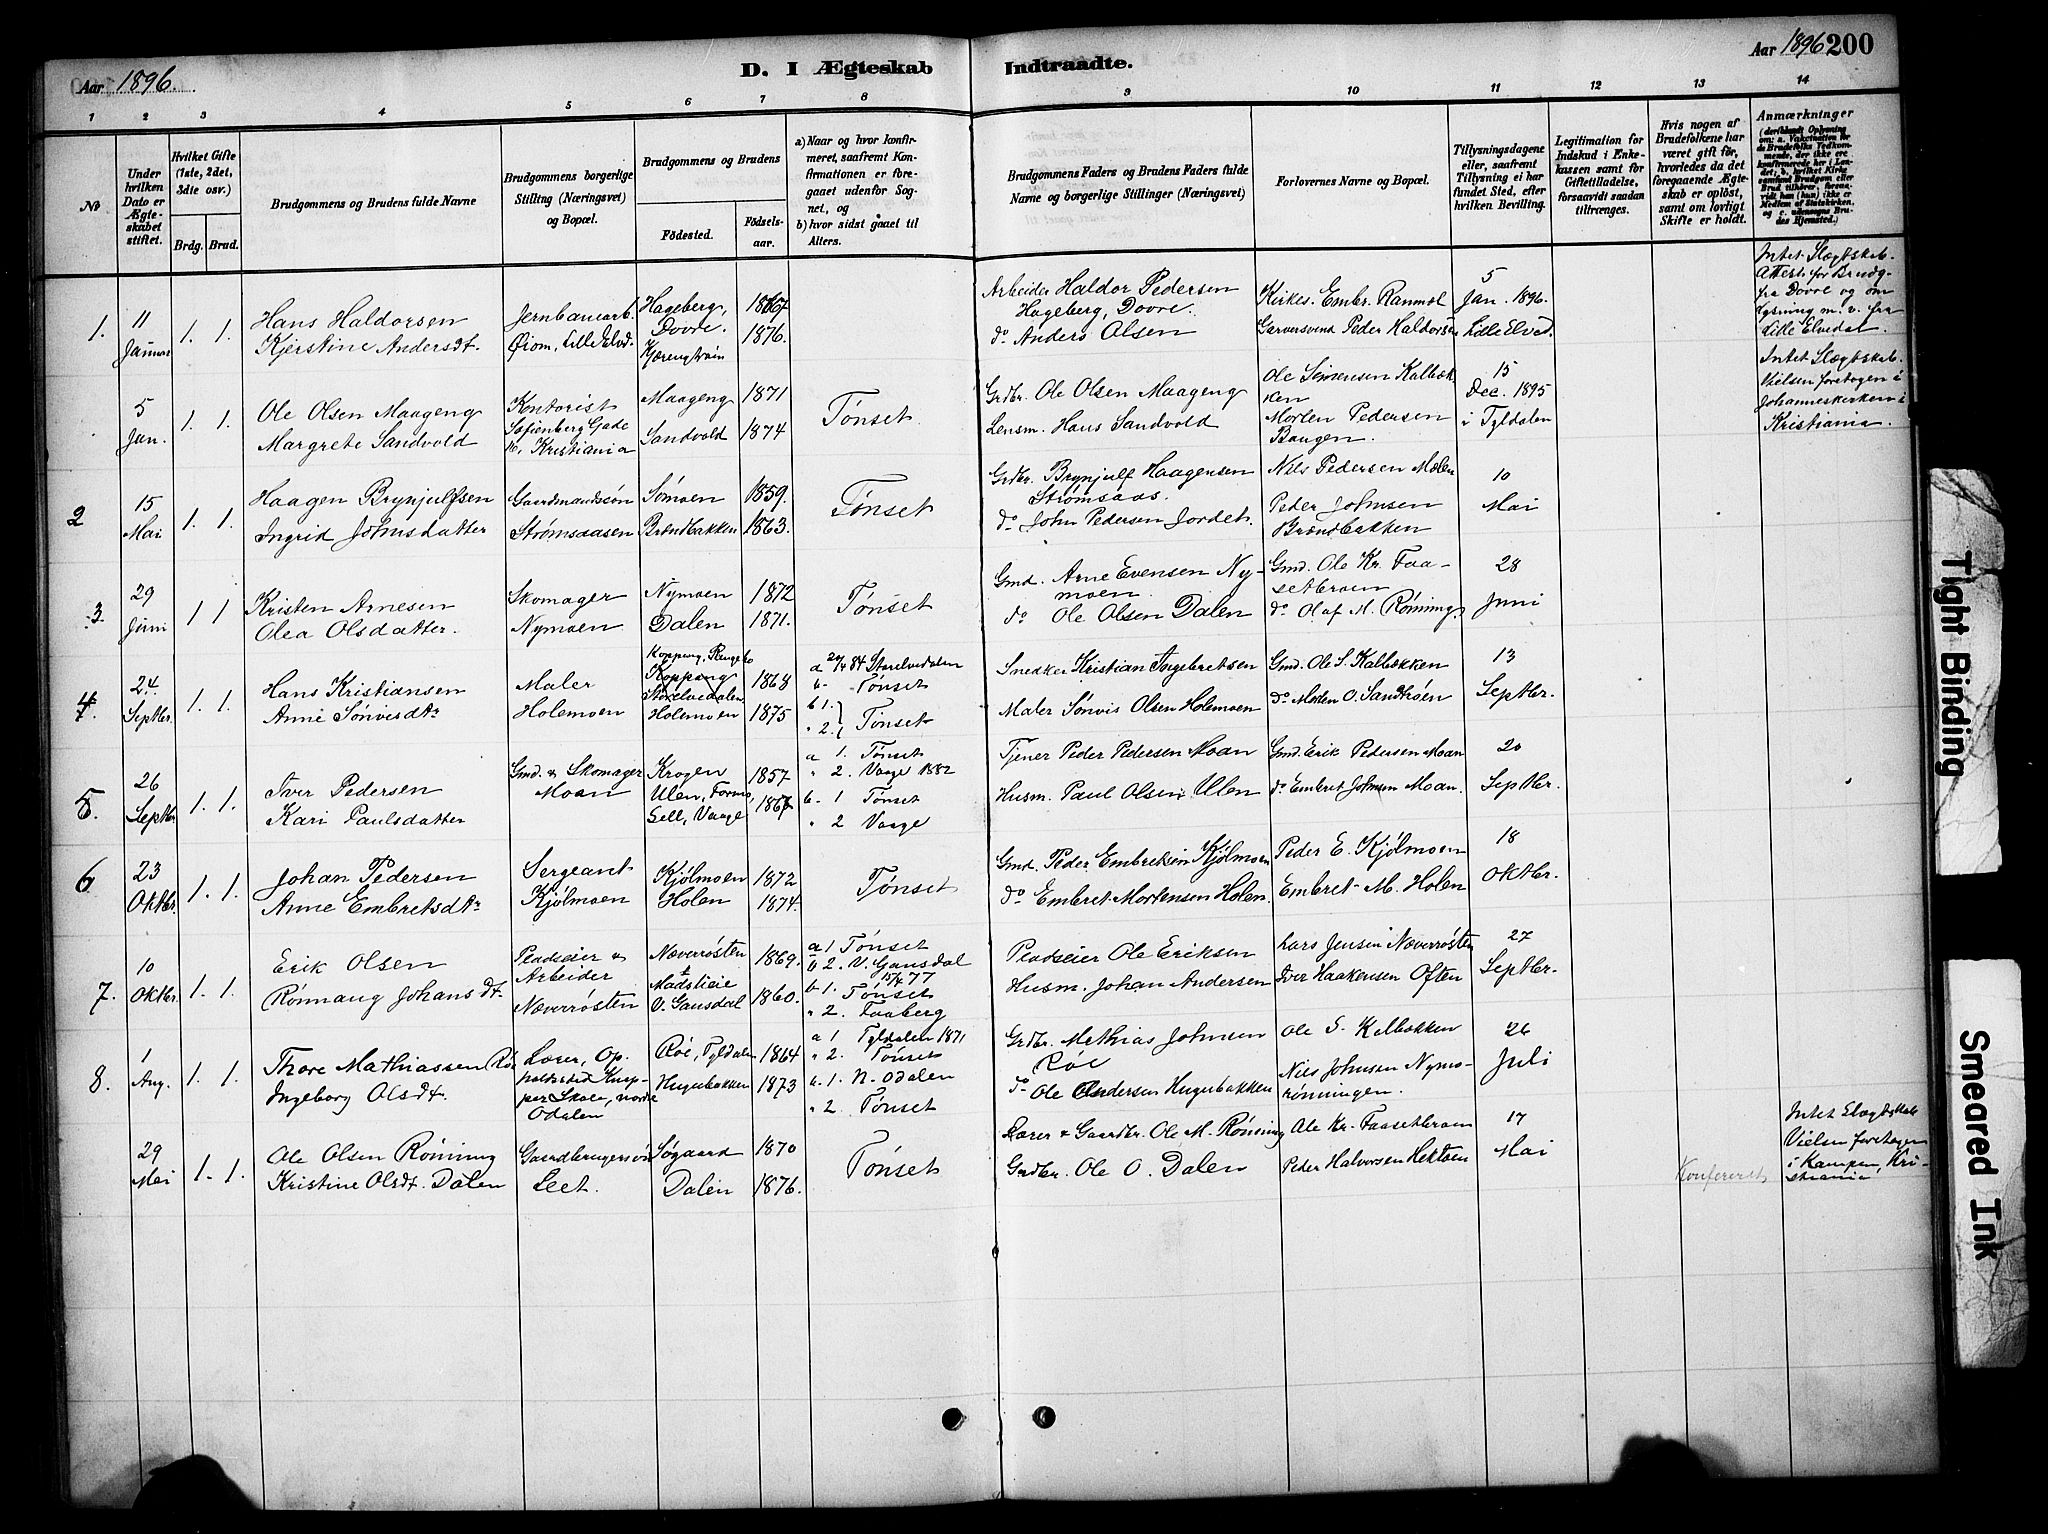 Aar 1896.
D. I Ægteskab Indtraadte.
Aar 1896 200
1 2 3 4 5 6 7 8 9 10 11 12 13 14
No
Under hvilken Dato er Ægteskabet stiftet.
Hvilket Gifte (1ste, 2det, 3die osv.)
Brdg. Brud.
Brudgommens og Brudens fulde Navne
Brudgommens borgerlige Stilling (Næringsvei) og Bopæl.
Brudgommens og Brudens
Födested.
Födsels-aar.
a) Naar og hvor konfirmeret, saafremt Konfirmationen er foregaaet udenfor Sognet, og
b) hvor sidst gaaet til Alters.
Brudgommens Faders og Brudens Faders fulde Navne og borgerlige Stillinger (Næringsvei)
Forlovernes Navne og Bopæl.
Tillysningsdagene eller, saafremt Tillysning ei har fundet Sted, efter hvilken Bevilling.
Legitimation for Indskud i Enkekassen samt for Giftetilladelse, forsaavidt saadan tiltrænges.
Hvis nogen af Brudefolkene har været gift før, hvorledes da det foregaaende Ægteskab er opløst, samt om lovligt Skifte er holdt.
Anmærkninger
1. 11 Januar 1. 1.
Hans Haldorsen
Kjerstine Andersdt.
Jernbanearb.
Øiom, Lille Elvd.
Hageberg, Dovre. 1867
1876.
Arbeider Haldor Pedersen
Hageberg, Dovre.
do Anders Olsen
Kirkes. Embr. Ranmæl
Garversvend Peder Haldorsen
5
Jan. 1896.
Lille Elved.
Intet Slægtskab.
Attest for Brudg.
fra Dovre og om
lysning m. v. fra
Lille Elvedal.
5 Jan. 1. 1.
Ole Olsen Maageng
Margrete Sandvold
Kontorist
Sofienberg Gade
Kristiania
Maageng 1871
Sandvold 1874
Tønset
Grdbr. Ole Olsen Maageng
Lensm. Hans Sandvold
Ole Simensen Kalbækken
Morten Pedersen
Baugen.
15
Dec. 1895
i Tyldalen
Intet Slægtskab.
Vielsen foretagen i
Johanneskirken i
Kristiania.
2 15 Mai 1. 1.
Haagen Brynjulfsen
Ingrid Johnsdatter
Gaardmandssøn
Strømsaasen
Sømoen 1859.
Brændbakken 1863.
Tønset
Grdbr. Brynjulf Haagensen
Strømsaas.
do John Pedersen Jordet.
Nils Pedersen Mælen
Peder Johnsen
Brændbakken
10
Mai
3. 29 Juni 1 1
Kristen Arnesen
Olea Olsdatter.
Skomager
Nymoen
Nymoen 1872
Dalen 1871.
Tønset
Gmd. Arne Evensen Nymoen.
do Ole Olsen Dalen
Gmd. Ole Kr. Faasetbraen
do Olaf M. Rønning
28
Juni
4. 24. Septbr. 1. 1.
Hans Kristiansen
Anne Sønvisdtr
Maler
Holemoen
Koppang
Storelvedalen 1868
Holemoen 1875
a 84 Storelvedalen
Tønset
b 1.
" 2. Tønset
Snedker Kristian Ingebretsen
Maler Sønvis Olsen Holemoen
Gmd. Ole S. Kalbækken
do Morten O. Sandtrøen
13
Septbr.
5. 26 Septbr. 1. 1.
Iver Pedersen
Kari Paulsdatter
Gmd. & Skomager
Moan
Krogen 1857
Ulen,
Sell, Vaage 1867
a 1. Tønset
" 2. Vaage 1882
b. 1 Tønset
" 2 Vaage
Tjener Peder Pedersen Moan
Husm. Paul Olsen Ulen
Gmd. Erik Pedersen Moan
do Embret Johnsen Moan.
20
Septbr.
6 23 Oktbr. 1. 1.
Johan Pedersen
Anne Embretsdtr
Sergeant
Kjølmoen
Kjølmoen 1872
Holen 1874.
Tønset
Gmd. Peder Embretsen Kjølmoen
do Embret Mortensen Holen.
Peder E. Kjølmoen
Embret M. Holen
18
Oktbr.
7. 10 Oktbr. 1. 1.
Erik Olsen
Rønnaug Johansdt.
Pladseier &
Arbeider
Næverrøsten
Næverrøsten 1869.
Madslieie
V. Gausdal 1860.
a 1 Tønset
2. V. Gausdal 77
b 1. Tønset
" 2. Faaberg
Pladseier Ole Eriksen
Husm. Johan Andersen
Lars Jensen Næverrøsten
Iver Haakensen Often
27
Septbr.
8. 1 Aug. 1. 1.
Thore Mathiassen Røe
Ingeborg Olsdt.
Lærer, Opholdssted Knapper Skole, nordre Odalen
Røe, Tyldalen 1864
Hugubakken 1873
a 1 Tyldalen 1871
" 2. Tønset
b. 1. N. Odalen
" 2. Tønset
Grdbr. Mathias Johnsen
Røe
do Ole Andersen Hugubakken
Ole S. Kalbækken
Nils Johnsen Nymorønningen.
26
Juli
29 Mai 1. 1.
Ole Olsen Rønning
Kristine Olsdt. Dalen
Gaardbrugersøn
Leet.
Søgaard 1870
Dalen 1876.
Tønset
Lærer & Gaardbr. Ole M. Rønning
Grdbr. Ole O. Dalen
Ole Kr. Faasetbraen
Peder Halvorsen Hektoen
17
Mai
Konfereret
Intet Slægtskab
Vielsen foretagen
i Kampen, Kristiania
Tight Binding
Smeared Ink